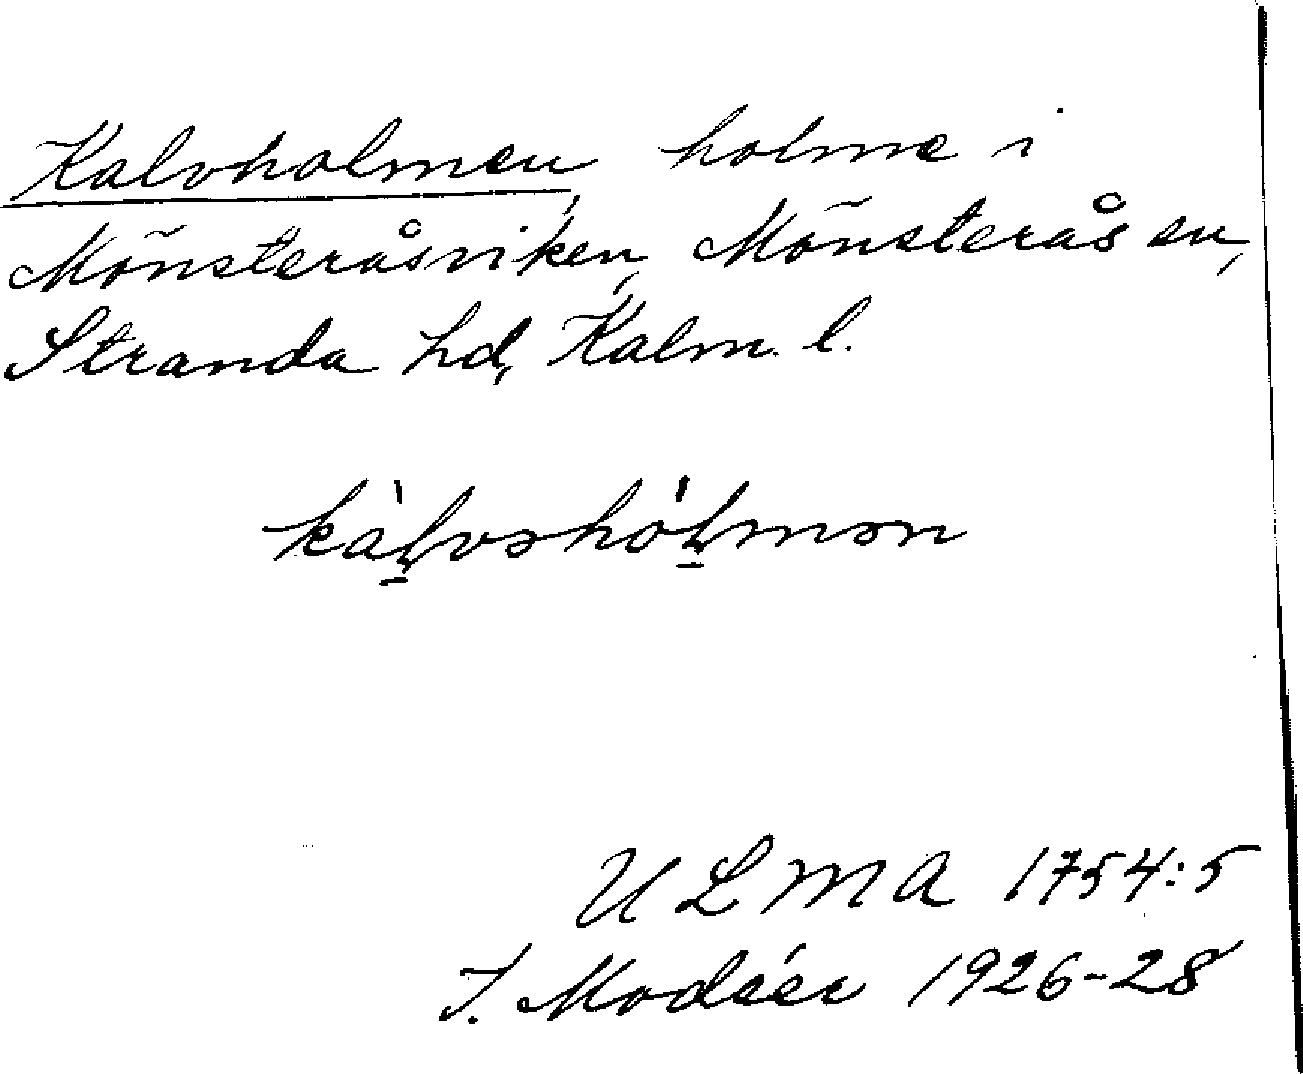 Kalvholmen, holme i
Mönsteråsviken, Mönsterås sn,
Stranda hd, Kalm. l.
kàḷvəhóḷmən
ULMA 1754:5
I. Modéer 1926-28